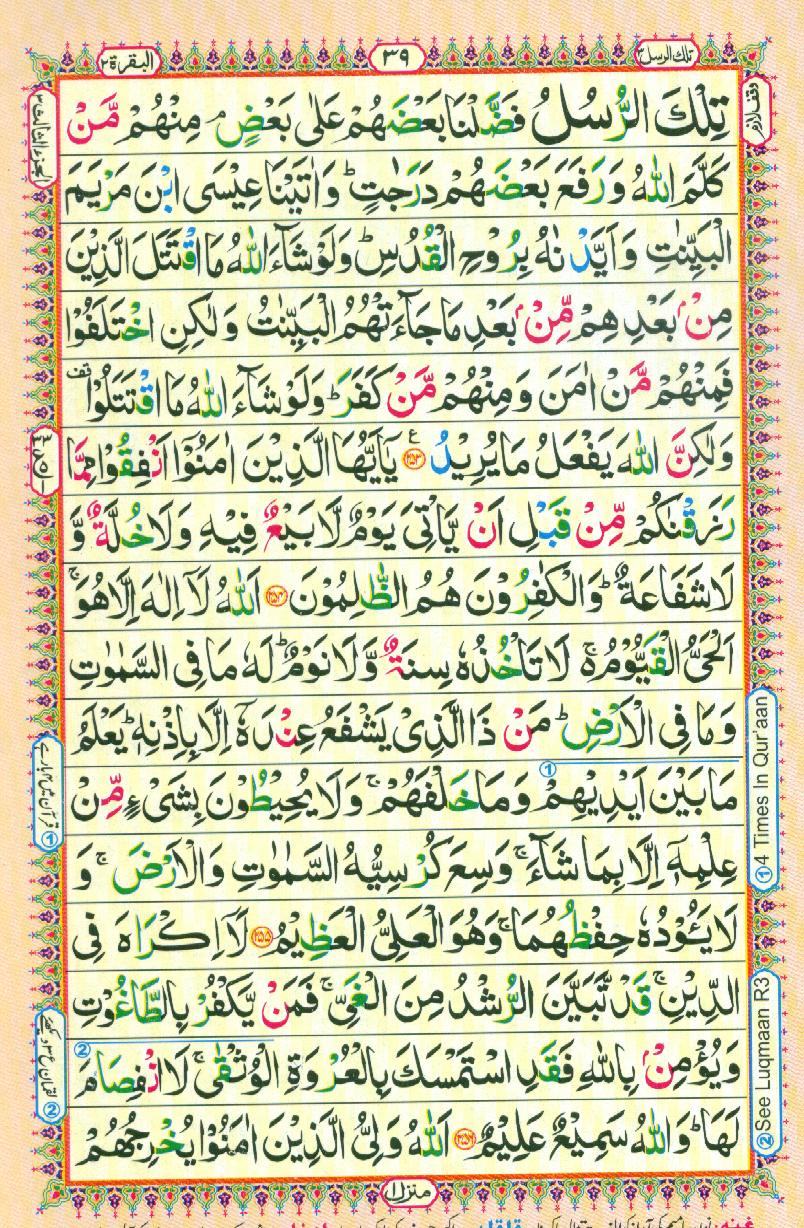 تلك الرسل ٣
٣٩
البقرة ٢
وقف لازم
الجزء الثالث ٣
تِلْكَ الرُّسُلُ فَضَّلْنَا بَعْضَهُمْ عَلٰى بَعْضٍ ۘ مِنْهُمْ مَّنْ
كَلَّمَ اللّٰهُ وَرَفَعَ بَعْضَهُمْ دَرَجٰتٍ ؕ وَاٰتَيْنَا عِيْسَى ابْنَ مَرْيَمَ
الْبَيِّنٰتِ وَاَيَّدْنٰهُ بِرُوْحِ الْقُدُسِ ؕ وَلَوْ شَآءَ اللّٰهُ مَا اقْتَتَلَ الَّذِيْنَ
مِنْۢ بَعْدِهِمْ مِّنْۢ بَعْدِ مَا جَآءَتْهُمُ الْبَيِّنٰتُ وَلٰكِنِ اخْتَلَفُوْا
فَمِنْهُمْ مَّنْ اٰمَنَ وَمِنْهُمْ مَّنْ كَفَرَ ؕ وَلَوْ شَآءَ اللّٰهُ مَا اقْتَتَلُوْا قف
وَلٰكِنَّ اللّٰهَ يَفْعَلُ مَا يُرِيْدُ ﴿۲۵۳﴾ ع يٰۤاَيُّهَا الَّذِيْنَ اٰمَنُوْۤا اَنْفِقُوْا مِمَّا
رَزَقْنٰكُمْ مِّنْ قَبْلِ اَنْ يَّاْتِىَ يَوْمٌ لَّا بَيْعٌ فِيْهِ وَلَا خُلَّةٌ وَّ
لَا شَفَاعَةٌ ؕ وَالْكٰفِرُوْنَ هُمُ الظّٰلِمُوْنَ ﴿۲۵۴﴾ اَللّٰهُ لَاۤ اِلٰهَ اِلَّا هُوَ ۚ
اَلْحَىُّ الْقَيُّوْمُ ۬ۚ لَا تَاْخُذُهٗ سِنَةٌ وَّلَا نَوْمٌ ؕ لَهٗ مَا فِى السَّمٰوٰتِ
وَمَا فِى الْاَرْضِ ؕ مَنْ ذَا الَّذِىْ يَشْفَعُ عِنْدَهٗۤ اِلَّا بِاِذْنِهٖ ؕ يَعْلَمُ
مَا بَيْنَ اَيْدِيْهِمْ ① وَمَا خَلْفَهُمْ ۚ وَلَا يُحِيْطُوْنَ بِشَىْءٍ مِّنْ
عِلْمِهٖۤ اِلَّا بِمَا شَآءَ ۚ وَسِعَ كُرْسِيُّهُ السَّمٰوٰتِ وَالْاَرْضَ ۚ وَ
لَا يَـُٔوْدُهٗ حِفْظُهُمَا ۚ وَهُوَ الْعَلِىُّ الْعَظِيْمُ ﴿۲۵۵﴾ لَاۤ اِكْرَاهَ فِى
الدِّيْنِ ۚ قَدْ تَّبَيَّنَ الرُّشْدُ مِنَ الْغَىِّ ۚ فَمَنْ يَّكْفُرْ بِالطَّاغُوْتِ
② وَيُؤْمِنْۢ بِاللّٰهِ فَقَدِ اسْتَمْسَكَ بِالْعُرْوَةِ الْوُثْقٰى ۚ لَا انْفِصَامَ
لَهَا ؕ وَاللّٰهُ سَمِيْعٌ عَلِيْمٌ ﴿۲۵۶﴾ اَللّٰهُ وَلِىُّ الَّذِيْنَ اٰمَنُوْا يُخْرِجُهُمْ
① 4 Times In Qur'aan
② See Luqmaan R3
① قرآن میں ۴ بارہے
② لقمان ع ۳ دیکھئے
منزل ۱